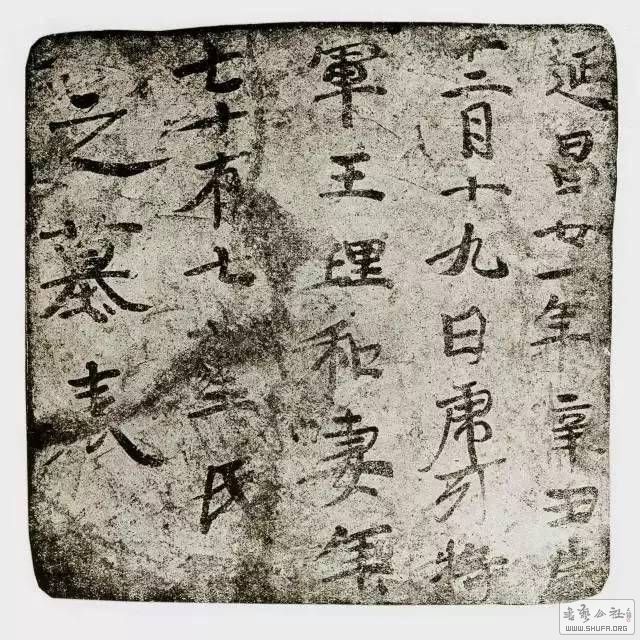 延昌廿一年辛丑歲
十二月十九日虎牙將
軍王理和妻年
七十有七氏
之墓表
書藝公社
WWW.SHUFA.ORG